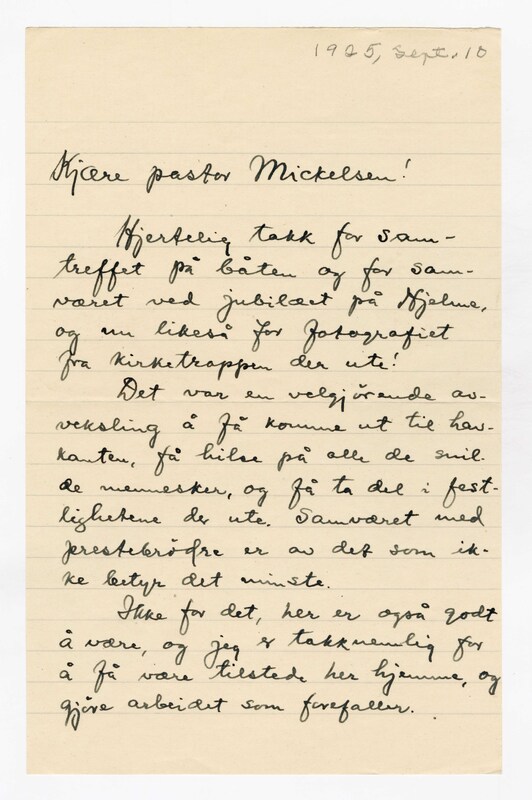 1925, Sept. 10
Kjære pastor Mickelsen!
Hjertelig takk for sam-
treffet på båten og for sam-
været ved jubilæet på Hjelme,
og nu likeså for fotografiet
fra kirketrappen der ute!
Det var en velgjörende av-
veksling å få komme ut til hav-
kanten, få hilse på alle de snil-
de mennesker, og få ta del i fest-
lighetene der ute. Samværet med
prestebrödre er av det som ik-
ke betyr det minste.
Ikke for det, her er også godt
å være, og jeg er takknemlig for
å få være tilstede her hjemme, og
gjöre arbeidet som forefaller.